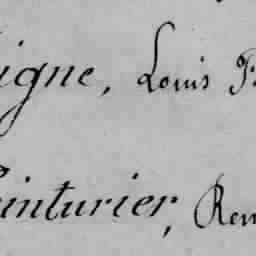 igne, Louis
inturier, Ren